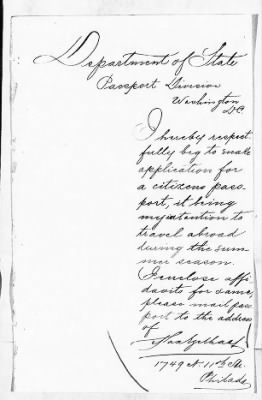 Department of State
Passport Division
Washington
D.C.
I hereby respect
fully beg to make
application for
a citizens pass
port, it being
my intention to
travel abroad
during the sum
mer season.
I enclose affi
davits for same,
please mail pass
port to the address
of
1749 N 11th St.
Philada